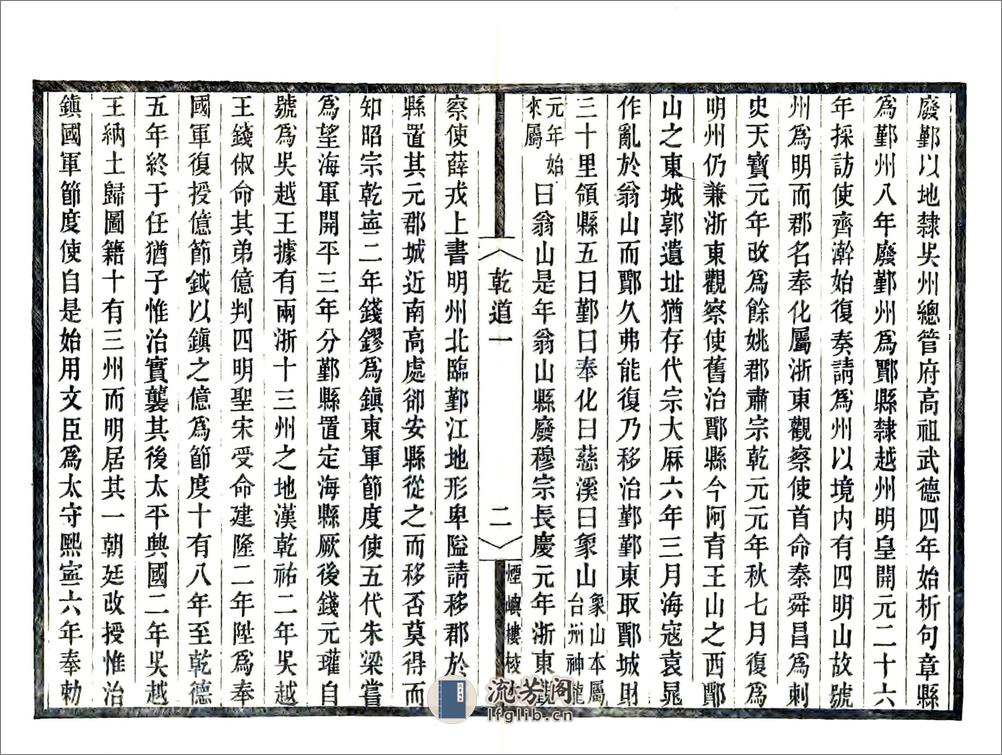 廢鄞以地隸吳州總管府高祖武德四年始析句章縣
爲鄞州八年廢鄞州爲鄮縣隸越州明皇開元二十六
年採訪使齊澣始復奏請爲州以境内有四明山故號
州爲明而郡名奉化屬浙東觀察使首命秦舜昌爲刺
史天寶元年改爲餘姚郡肅宗乾元元年秋七月復爲
明州仍兼浙東觀察使舊治鄮縣今阿育王山之西鄮
山之東城郭遺址猶存代宗大厤六年三月海寇袁晁
作亂於翁山而鄮久弗能復乃移治鄞東取鄮城財
三十里領縣五曰鄞曰奉化曰慈溪曰象山象山本屬台州神龍
元年始來屬曰翁山是年翁山縣廢穆宗長慶元年浙東
乾道一
二
煙嶼樓校
察使薛戎上書明州北臨鄞江地形卑隘請移郡於
縣置其元郡城近南高處卻安縣從之而移否莫得而
知昭宗乾寧二年錢鏐爲鎮東軍節度使五代朱梁嘗
爲望海軍開平三年分鄞縣置定海縣厥後錢元瓘自
號爲吳越王據有兩浙十三州之地漢乾祐二年吳越
王錢俶命其弟億判四明聖宋受命建隆二年陞爲奉
國軍復授億節鉞以鎮之億爲節度十有八年至乾德
五年終于任猶子惟治實襲其後太平興國二年吳越
王納土歸圖籍十有三州而明居其一朝廷改授惟治
鎮國軍節度使自是始用文臣爲太守熙寧六年奉勅
流芳阁
lfglib.cn